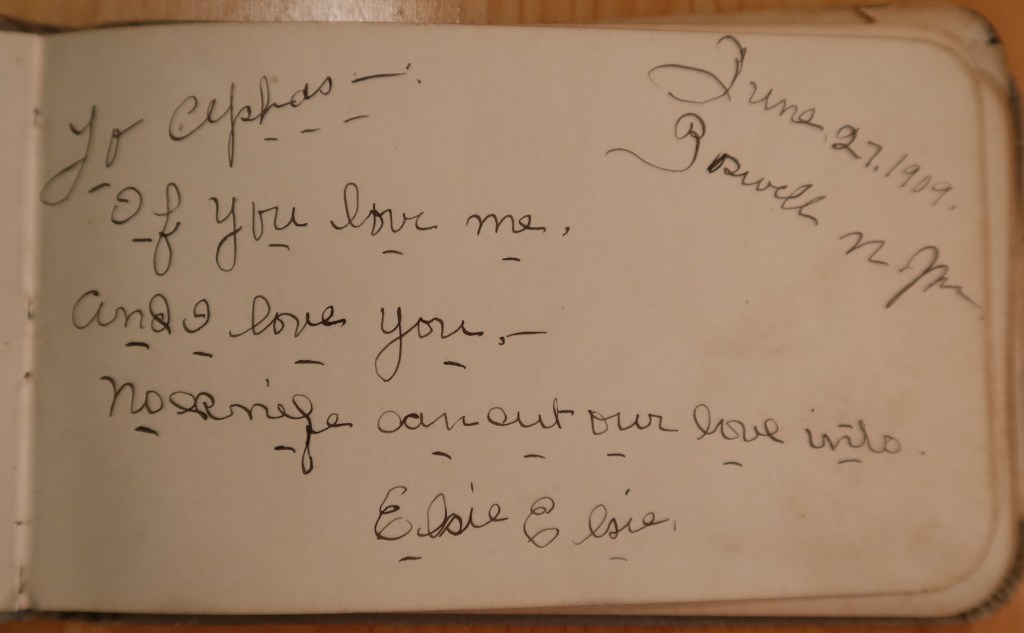 To Cephas —.
June. 27. 1909.
Roswell N. M
If you love me,
And I love you, —
No knife can cut our love into.
Elsie Elsie.